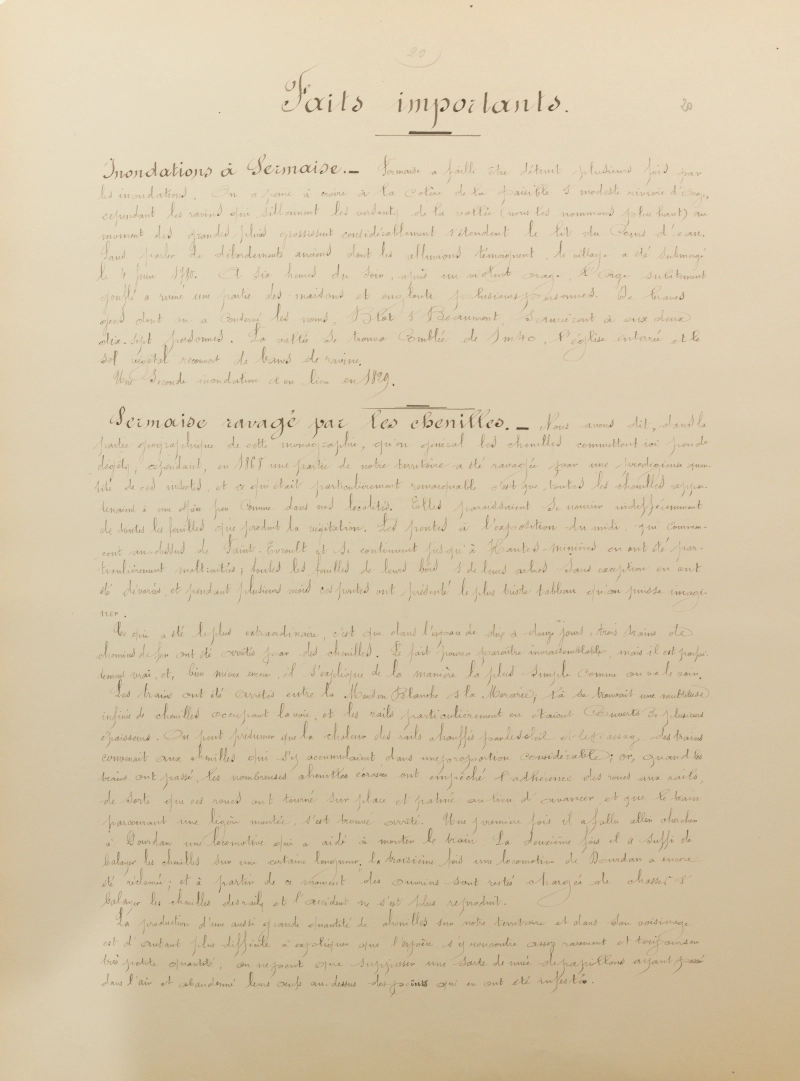 20
Faits importants.
20
Inondations à Sermaise. _ Sermaise a failli être détruit plusieurs fois par
les inondations. On a peine à croire à la colère de la paisible & modeste rivière d'Orge,
cependant les ravins qui sillonnent les versants de la vallée (nous les nommons plus haut) au
moment des grandes pluies grossissent considérablement & étendent le lit du cours d'eau.
Sans parler de débordements anciens dont les alluvions témoignent, le village a été submergé
le 4 Juin A six heures du soir, après un violent orage, l'Orge subitement
gonflé a ruiné une partie des maisons et englouti plusieurs personnes. De braves
gens dont on a conservé les noms, & Beaumont sauvèrent à eux deux
dix-sept personnes. La vallée se trouva comblée de l'église enterrée et le
sol végétal recouvert de bancs de ravine.
Une Seconde inondation eu lieu en 1829.
Sermaise ravagé par les chenilles. _ Nous avons dit, dans la
partie géographique de cette monographie, qu'en général les chenilles commettent ici peu de
dégâts; cependant, en une partie de notre territoire a été ravagée par une prodigieuse quan-
tité de ces insectes, et ce qui était particulièrement remarquable c'est que toutes les chenilles appar-
tenaient à un type peu connu dans nos localités. Elles paraissaient se nourrir indifféremment
de toutes les feuilles que produit la végétation. Les pentes à l'exposition du midi, qui commen-
cent au-dessus de Saint-Evroult et se continuent jusqu'à Hautes-Minières en ont été par-
ticulièrement maltraitées; toutes les feuilles de leurs bois & de leurs arbres sans exception en ont
été dévorées, et pendant plusieurs mois ces pentes ont présenté le plus triste tableau qu'on puisse imagi-
ner.
Ce qui a été le plus extraordinaire, c'est que dans l'espace de dix à douze jours, trois trains de
chemins de fer ont été arrêtés par des chenilles. Le fait pourra paraître invraisemblable, mais il est parfai-
tement vrai, et, bien mieux encore, il s'explique de la manière la plus simple comme on va le voir.
Les trains ont été arrêtés entre la Maison Blanche & la Mercerie; là se trouvait une multitude
infinie de chenilles occupant la voie, et les rails particulièrement en étaient couverts de plusieurs
épaisseurs. On peut présumer que la chaleur des rails chauffés par le soleil et des trains
convenait aux chenilles qui s'y accumulaient dans une proportion considérable; or, quand les
trains ont passé, les nombreuses chenilles écrasées ont empêché l'adhérence des roues aux rails,
de sorte que ces roues ont tourné sur place et patiné au lieu d'avancer et que le train
parcourant une légère montée, s'est trouvé arrêté. Une première fois il a fallu aller chercher
à Dourdan une locomotive qui a aidé à monter le train. La deuxième fois il a suffi de
balayer les chenilles sur une certaine longueur; la troisième fois une locomotive de Dourdan a encore
été réclamée; et à partir de ce moment des ouvriers sont restés chargés de chasser &
balayer les chenilles des rails et l'accident ne s'est plus reproduit.
La production d'une aussi grande quantité de chenilles sur notre territoire et dans son voisinage
est d'autant plus difficile à expliquer que l'espèce s'y rencontre assez rarement et toujours en
très petite quantité; on ne peut que supposer une sorte de nuée de papillons ayant passé
dans l'air et abandonné leurs œufs au-dessus des points qui en ont été infestés.